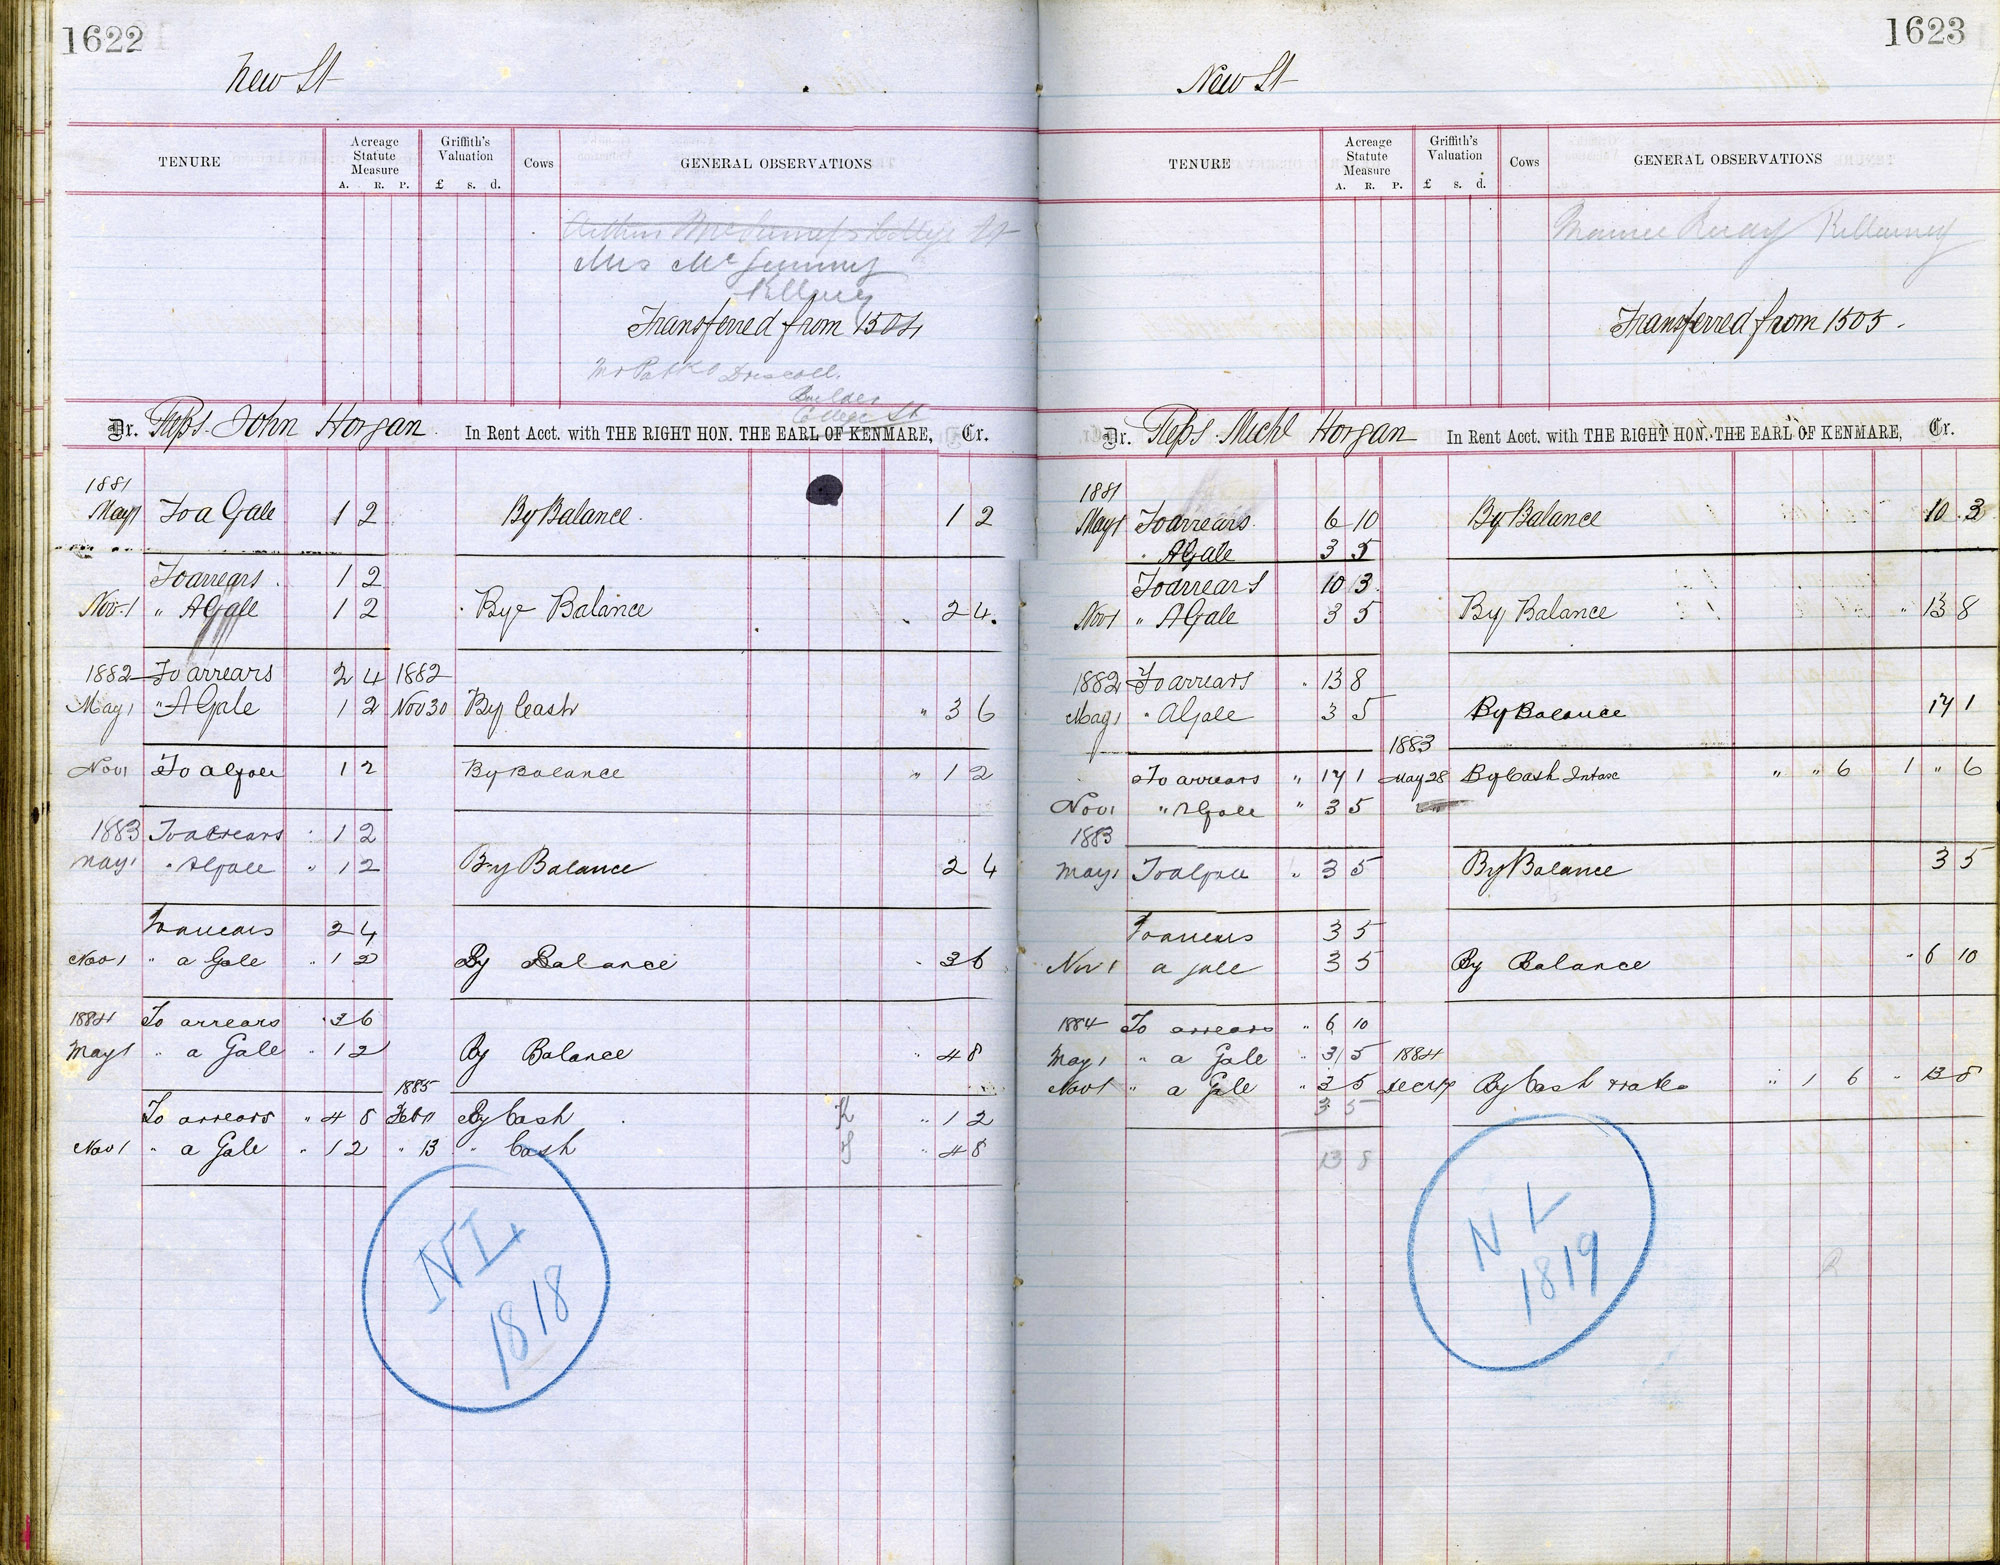 1622
New St
TENURE
Acreage Statute Measure
A. R. P.
Griffith's Valuation
£ s. d.
Cows
GENERAL OBSERVATIONS
College St
Mrs Mc
Transferred from 1504
Driscoll.
Builder
College St
Dr. Reps. John Horgan In Rent Acct. with THE RIGHT HON. THE EARL OF KENMARE, Cr.
1881
May 1 To a Gale 1 2 By Balance. 1 2
To arrears. 1 2
Nov. 1 " A Gale 1 2 By Balance 2 4.
1882 To arrears 2 4 1882
May 1 " A Gale 1 2 Nov 30 By Cash " 3 6
Nov 1 To a Gale 1 2 By Balance " 1 2
1883 To arrears " 1 2
May 1 " A Gale " 1 2 By Balance 2 4
To arrears 2 4
Nov 1 " a Gale " 1 2 By Balance " 3 6
1884 To arrears " 3 6
May 1 " a Gale " 1 2 By Balance " 4 8
1885
To arrears " 4 8 Feb 11 By Cash K " 1 2
Nov 1 " a Gale " 1 2 " 13 " Cash " 4 8
1818
1623
New St
TENURE
Acreage Statute Measure
A. R. P.
Griffith's Valuation
£ s. d.
Cows
GENERAL OBSERVATIONS
Maurice Killarney
Transferred from 1505.
Dr. Reps. Michl Horgan In Rent Acct. with THE RIGHT HON. THE EARL OF KENMARE, Cr.
1881
May 1 To arrears. 6 10 By Balance 10. 3
" A Gale 3 5
To arrears 10 3.
Nov 1 " A Gale 3 5 By Balance " 13 8
1882 To arrears " 13 8
May 1 " A Gale 3 5 By Balance 17 1
1883
To arrears " 17 1 May 28 By Cash " " 6 1 " 6
Nov 1 " A Gale " 3 5
1883
May 1 To a Gale " 3 5 By Balance 3 5
To arrears 3 5
Nov 1 a gale 3 5 By Balance " 6 10
1884 To arrears " 6 10
May 1 " a Gale " 3 5 1884
Nov 1 " a Gale " 3 5 Dec 17 By Cash " 1 6 " 13 8
3 5
13 8
N L
1819